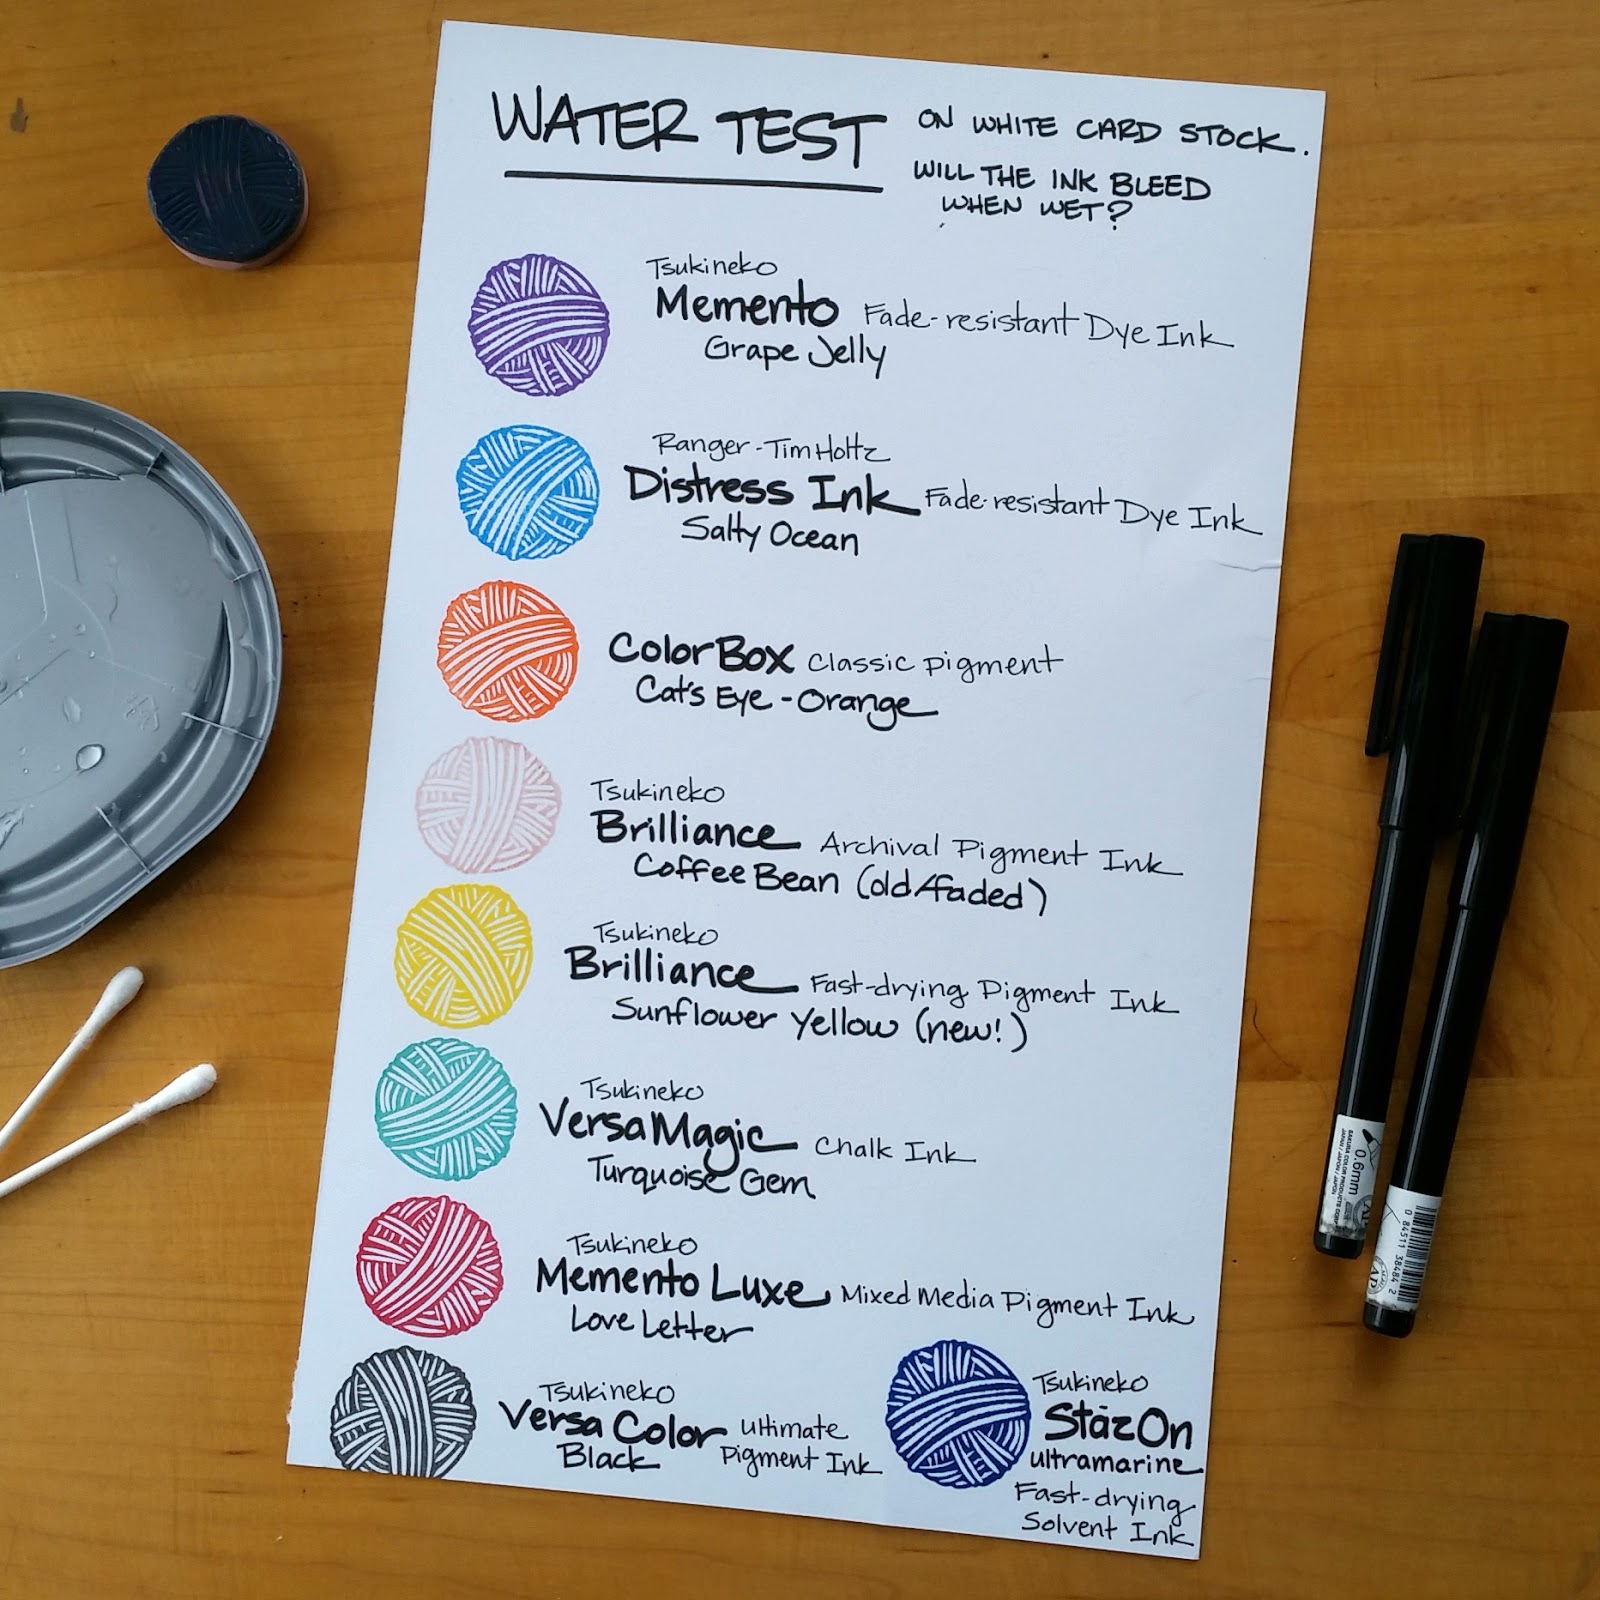 WATER TEST
ON WHITE CARD STOCK.
WILL THE INK BLEED
WHEN WET?
Tsukineko
Memento Fade-resistant Dye Ink
Grape Jelly
Ranger-Tim Holtz
Distress Ink Fade-resistant Dye Ink
Salty Ocean
ColorBox Classic Pigment
Cat's Eye - Orange
Tsukineko
Brilliance Archival Pigment Ink
Coffee Bean (old/faded)
Tsukineko
Brilliance Fast-drying Pigment Ink
Sunflower Yellow (new!)
Tsukineko
VersaMagic Chalk Ink
Turquoise Gem
Tsukineko
Memento Luxe Mixed Media Pigment Ink
Love Letter
Tsukineko
Versa Color Ultimate
Black Pigment Ink
Tsukineko
StāzOn
ultramarine
Fast-drying
Solvent Ink
0.6mm
SAKURA COLOR PRODUCTS CORP
0 84511 38484 2
AP